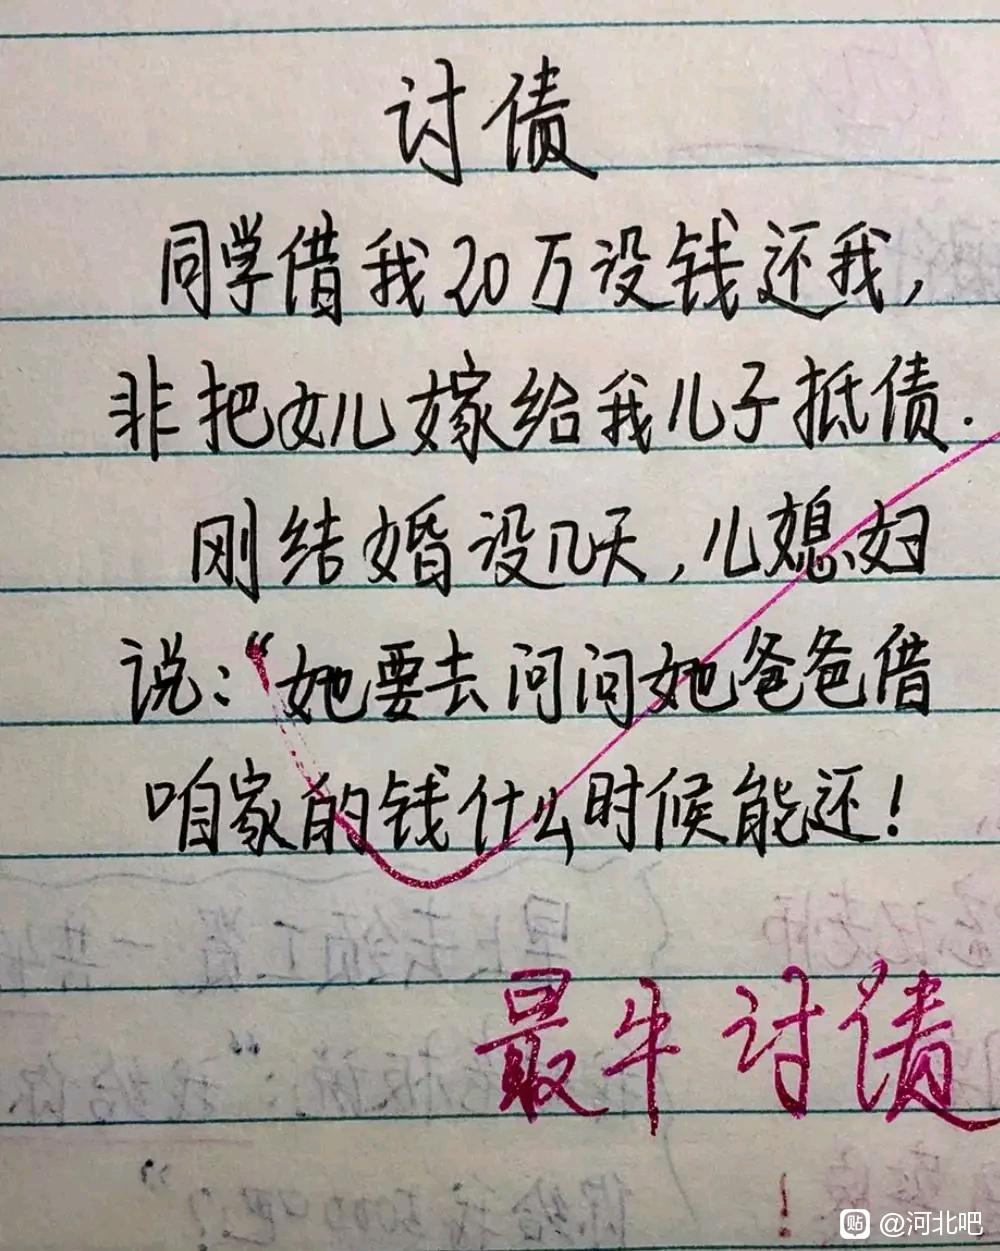 讨债
同学借我20万没钱还我,
非把女儿嫁给我儿子抵债.
刚结婚没几天,儿媳妇
说:“她要去问问她爸爸借
咱家的钱什么时候能还!
最牛讨债
贴 @河北吧